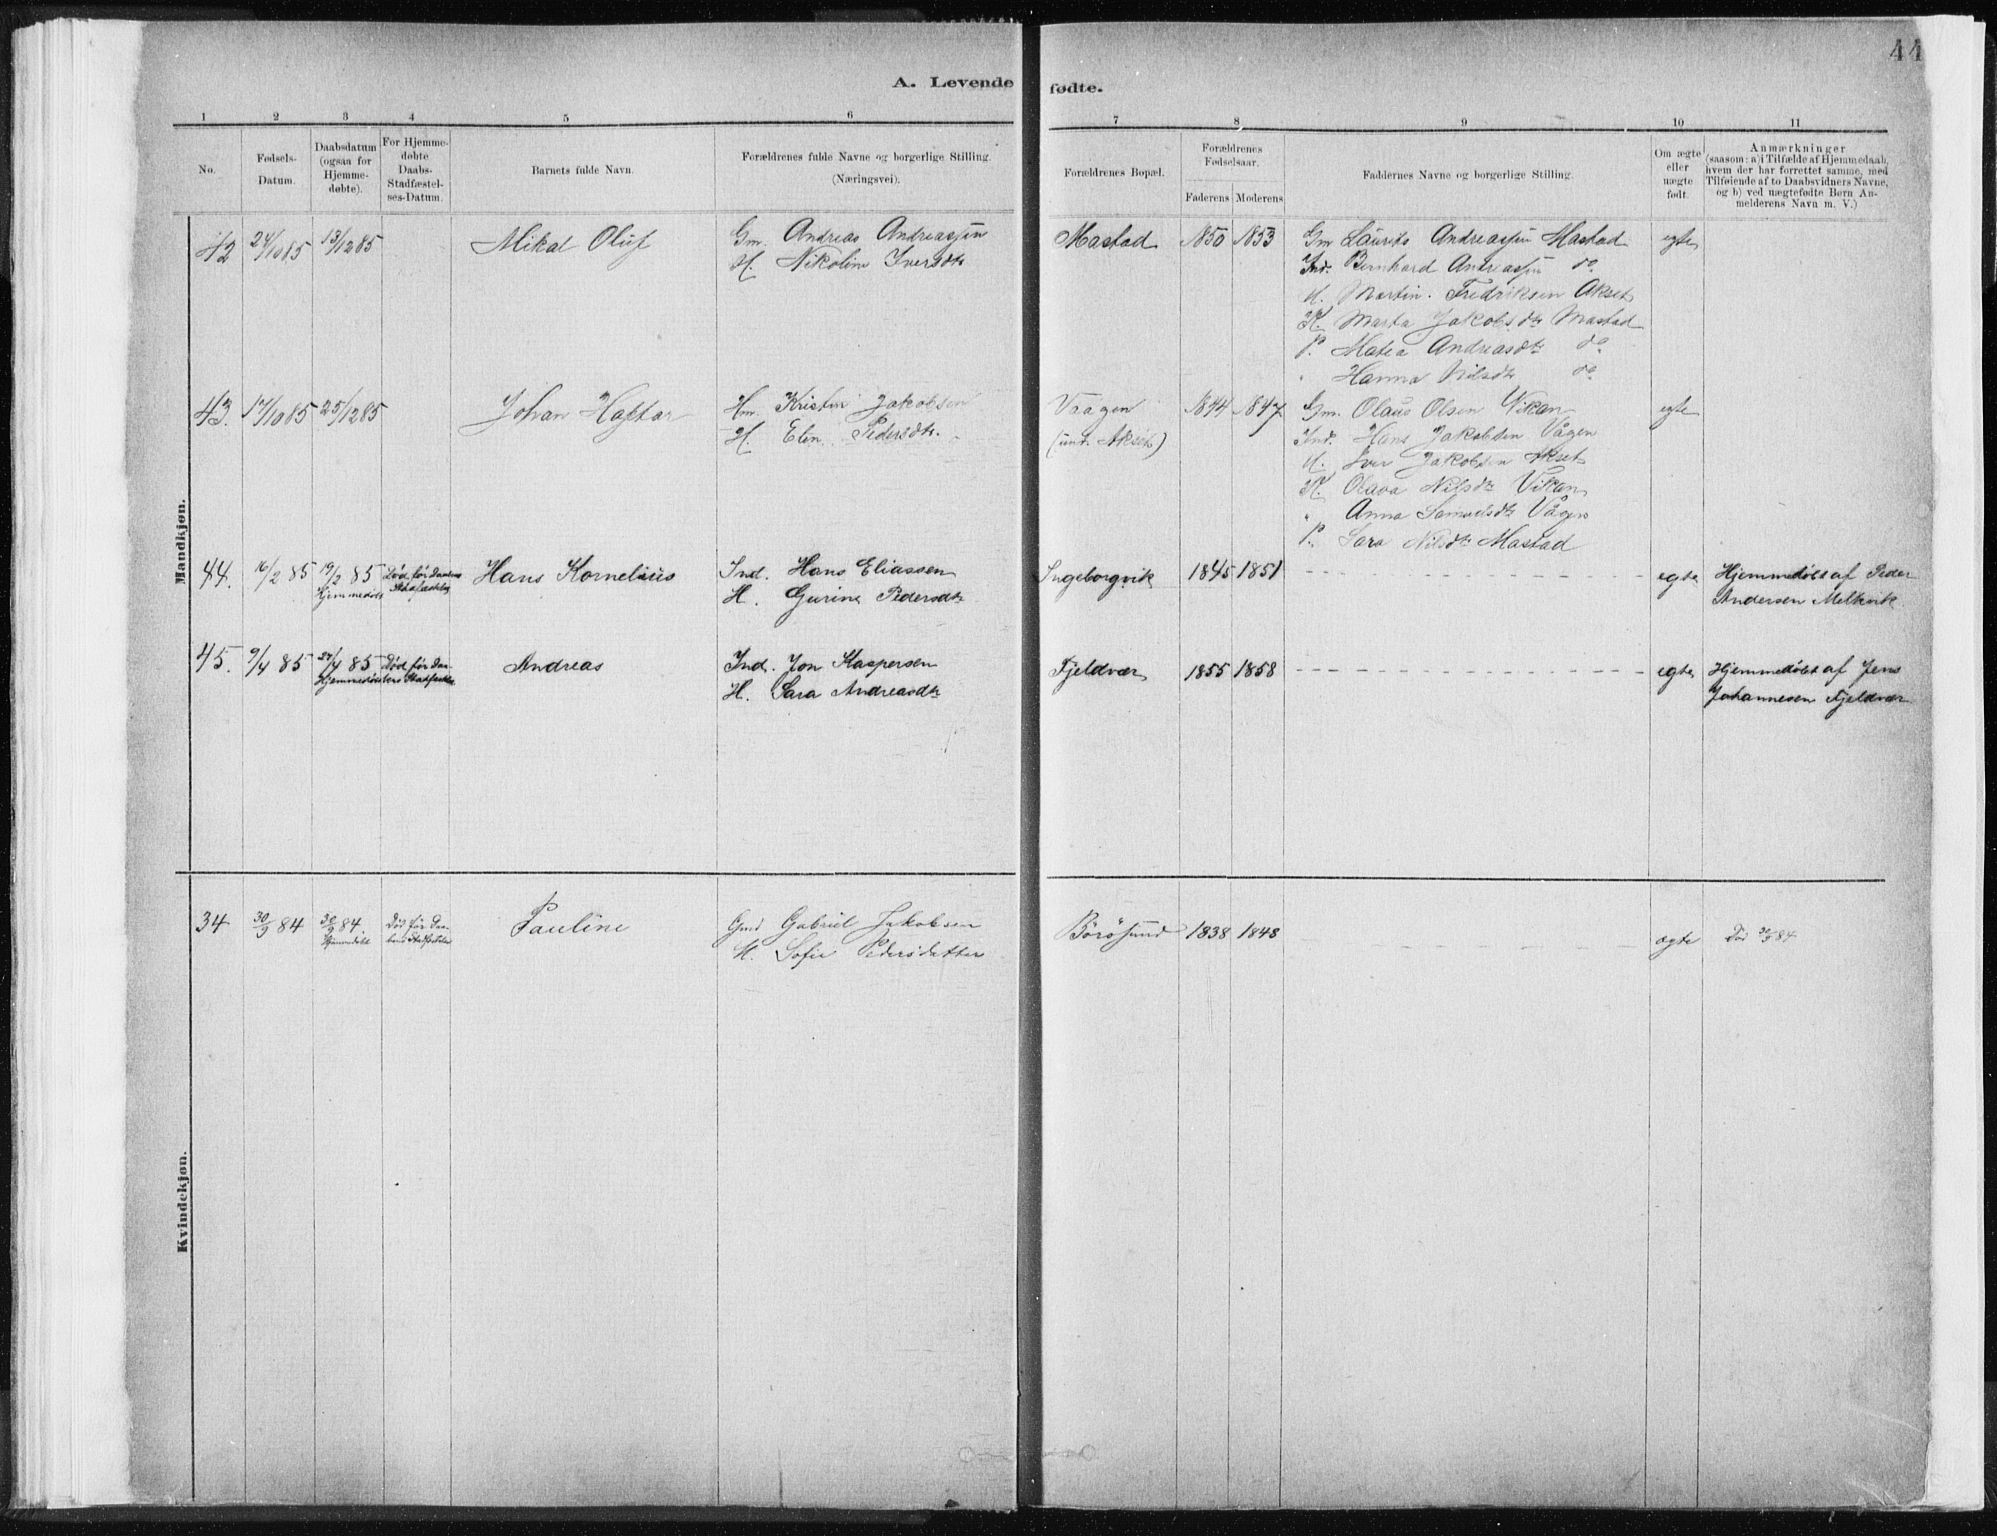 44
A. Levende fødte.
1 2 3 4 5 6 7 8 9 10 11
No.
Fødsels-
Datum.
Daabsdatum
(ogsaa for
Hjemme-
døbte).
For Hjemme-
døbte
Daabs-
Stadfæstel-
ses-Datum.
Barnets fulde Navn.
Forældrenes fulde Navne og borgerlige Stilling.
(Næringsvei).
Forældrenes Bopæl.
Forældrenes
Fødselsaar.
Faderens Moderens
Faddernes Navne og borgerlige Stilling.
Om ægte
eller
uægte
født.
Anmærkninger
(saasom: a) i Tilfælde af Hjemmedaab,
hvem der har forrettet samme, med
Tilføiende af to Daabsvidners Navne,
og b) ved uægtefødte Børn An-
melderens Navn m. V.)
Mandkjøn.
42 24/10 85 13/12 85 Mikal Oluf Gm. Andreas Andreassen Mastad 1850 1853 Gm Laurits Andreassen Mastad egte
H. Nikoline Iversdtr Ind. Bernhard Andreassen do
U. Martin Fredriksen Akset
K. Marta Jakobsdtr Mastad
P. Matea Andreasdtr do
" Hanna Nilsdtr do
43. 17/10 85 25/12 85 Johan Hafstar Hm. Kristen Jakobsen Vaagen 1844 1847 Gm. Olaus Olsen Vikan egte
H. Elen Pedersdtr. (und. Akset) Ind. Hans Jakobsen Vågen
U. Iver Jakobsen Akset
K. Olava Nilsdtr Vikan
" Anna Samuelsdtr Vågen
P. Sara Nilsdtr Mastad
44. 16/2 85 19/2 85 Død før Daabens Hans Kornelius Ind. Hans Eliassen Ingeborgvik 1845 1851 egte Hjemmedøbt af Peder
Hjemmedøbt Stadfæstelse H. Gurine Pedersdtr Andersen Melkvik
45. 9/4 85 24/4 85 Død før Daa- Andreas Ind. Jon Kaspersen Fjeldvær 1855 1858 egte Hjemmedøbt af Jens
Hjemmedøbt bens Stadfæstelse H. Sara Andreasdtr Johannesen Fjeldvær
Kvindekjøn.
34 30/9 84 30/9 84. Død før Daa- Pauline Gmd Gabriel Jakobsen Börösund 1838 1848 ægte Død 30/9 84
Hjemmedøbt bens Stadfæstelse H. Sofie Pedersdatter